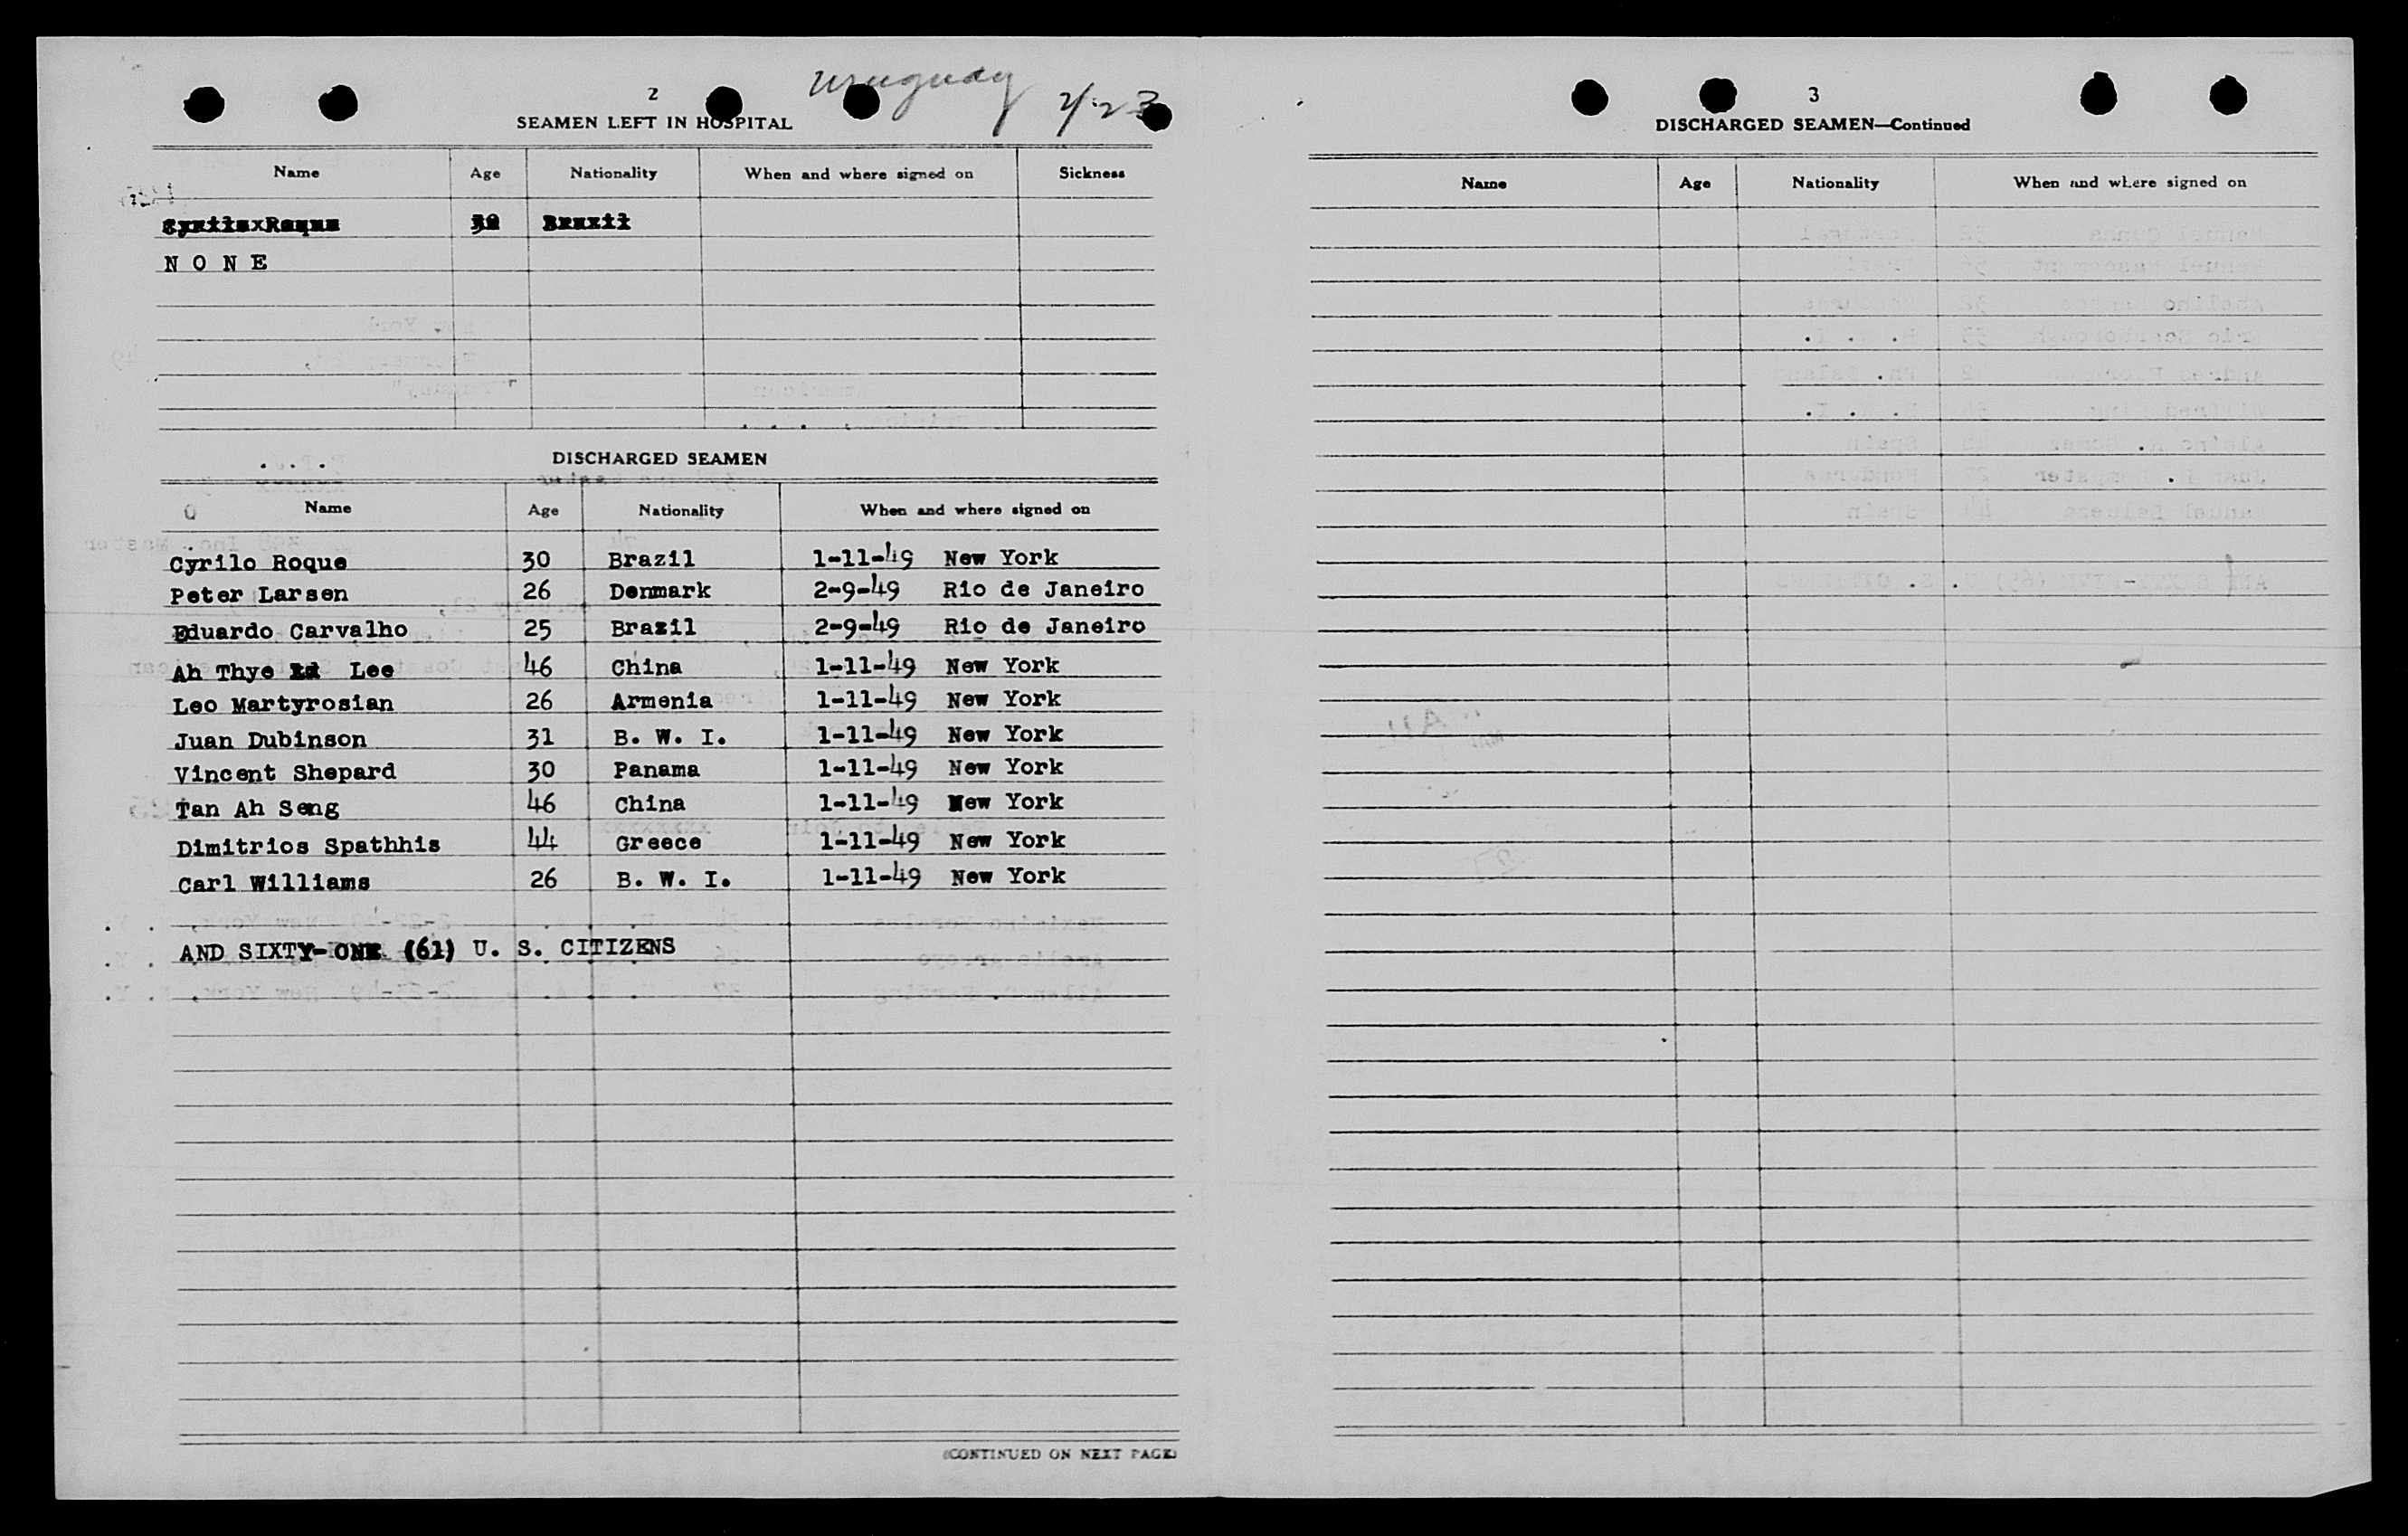 Uruguay 2/23
2
SEAMEN LEFT IN HOSPITAL
Name Age Nationality When and where signed on Sickness
Cyrilo Roque 30 Brazil
N O N E
DISCHARGED SEAMEN
Name Age Nationality When and where signed on
Cyrilo Roque 30 Brazil 1-11-49 New York
Peter Larsen 26 Denmark 2-9-49 Rio de Janeiro
Eduardo Carvalho 25 Brazil 2-9-49 Rio de Janeiro
Ah Thye Lee 46 China 1-11-49 New York
Leo Martyrosian 26 Armenia 1-11-49 New York
Juan Dubinson 31 B. W. I. 1-11-49 New York
Vincent Shepard 30 Panama 1-11-49 New York
Tan Ah Seng 46 China 1-11-49 New York
Dimitrios Spathhis 44 Greece 1-11-49 New York
Carl Williams 26 B. W. I. 1-11-49 New York
AND SIXTY-ONE (61) U. S. CITIZENS
(CONTINUED ON NEXT PAGE)
3
DISCHARGED SEAMEN—Continued
Name Age Nationality When and where signed on